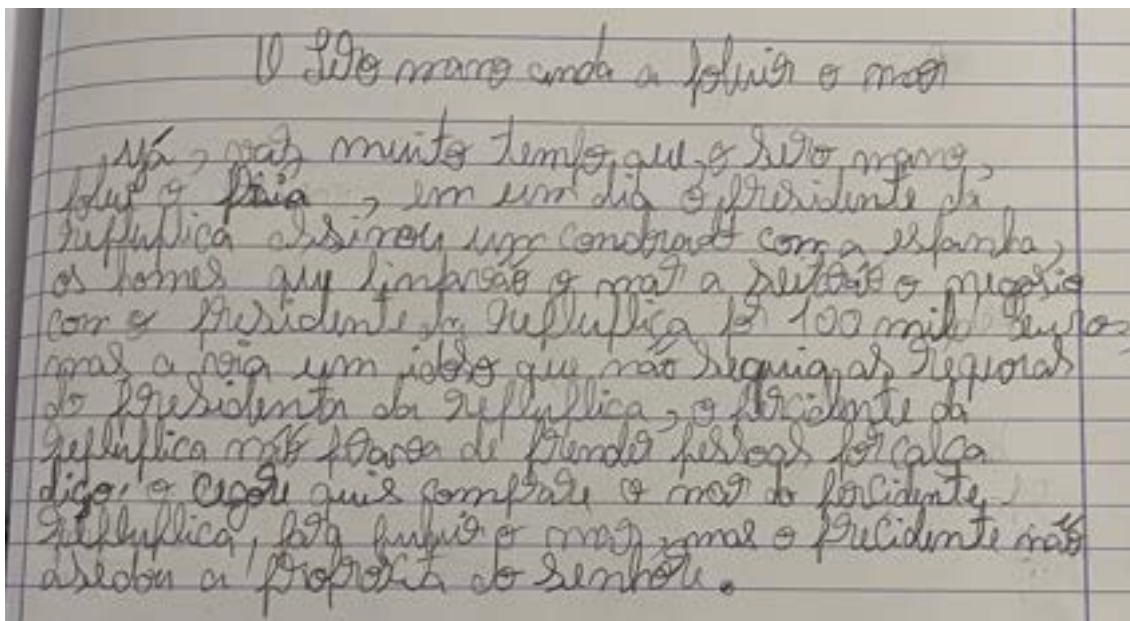 O Sero mano anda a poluir o mar
Já, vaiz muinto tempo, que, o Sero mano,
polui o praia, em um dia o presidente da
republica assinou um constrado com a espanha,
os homes que limparão o mar a seitarão o negosio
com o presidente da republica por 100 mil euros
mas a via um idoso que não seguia as regoras
do presidente da republica, o precidente da
republica não parava de prender pessoas por calça
digo, o quis comprare o mar do precidente
republica, para puluir o mar, mas o precidente não
asedou a proposta do senhore.